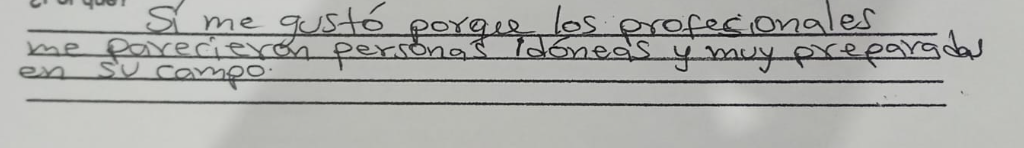 Sí me gustó porque los profesionales
me parecieron personas idóneas y muy preparadas
en su campo.